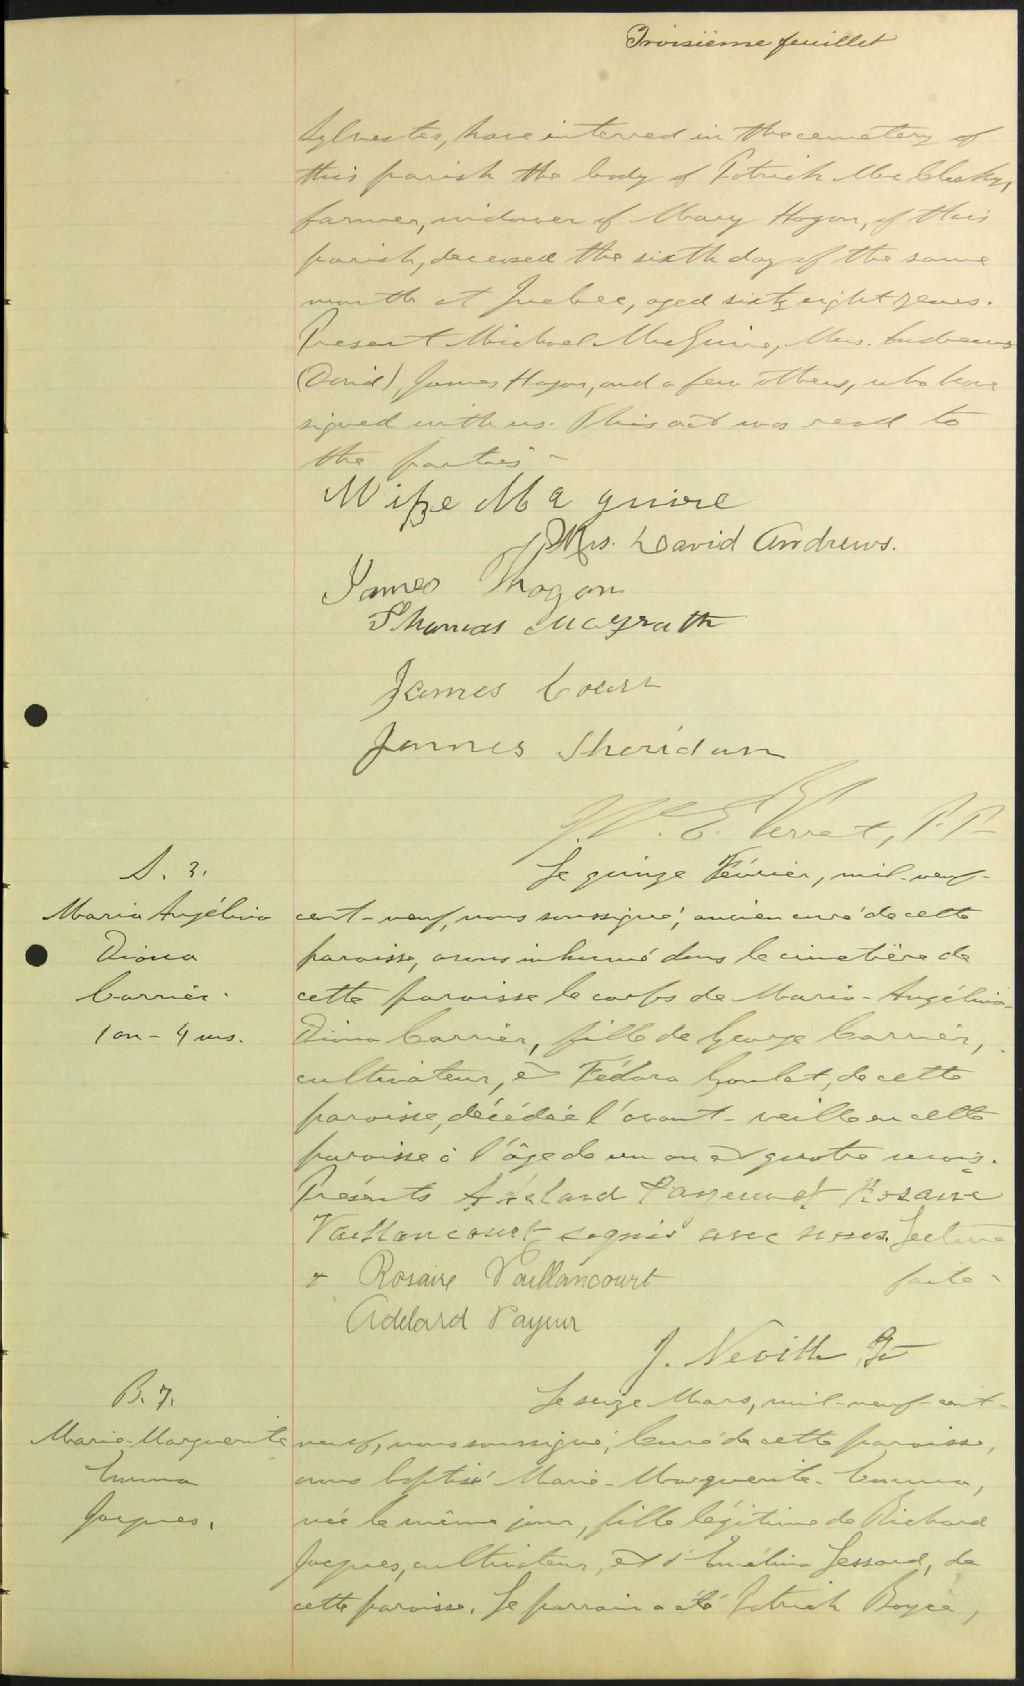 Troisième feuillet
Sylvester, have interred in the cemetery of
this parish the body of Patrick McClosky,
farmer, widower of Mary Hogan, of this
parish, deceased the sixth day of the same
month at Quebec, aged sixty eight years.
Present Michael McGuire, Mrs. Andrews
(David), James Hogan, and a few others, who have
signed with us. This act was read to
the parties -
Maguire
Mrs. David Andrews.
James Hogan
Thomas Magrath
James
James Sheridan
J. E. Verret, P.P.
S. 3.
Maria Angélina
Diona
Carrier.
1 an - 4 ms.
Le quinze Février, mil-neuf-
cent-neuf, nous soussigné, ancien curé de cette
paroisse, avons inhumé dans le cimetière de
cette paroisse le corps de Maria-Angélina-
Diona Carrier, fille de George Carrier,
cultivateur, et Fédora Goulet, de cette
paroisse, décédée l'avant-veille en cette
paroisse à l'âge de un an et quatre mois.
Présents Adélard Payeur et Rosaire
Vaillancourt soignés avec nous. Lecture
faite -
Rosaire Vaillancourt
Adelard Payeur
J. Neville Ptr
B. 7.
Marie-Marguerite
Emma
Jacques.
Le seize Mars, mil-neuf-cent-
neuf, nous soussigné, Curé de cette paroisse,
avons baptisé Marie-Marguerite-Emma,
née le même jour, fille légitime de Richard
Jacques, cultivateur, et d'Emélina Lessard, de
cette paroisse. Le parrain a été Patrick Boyce,